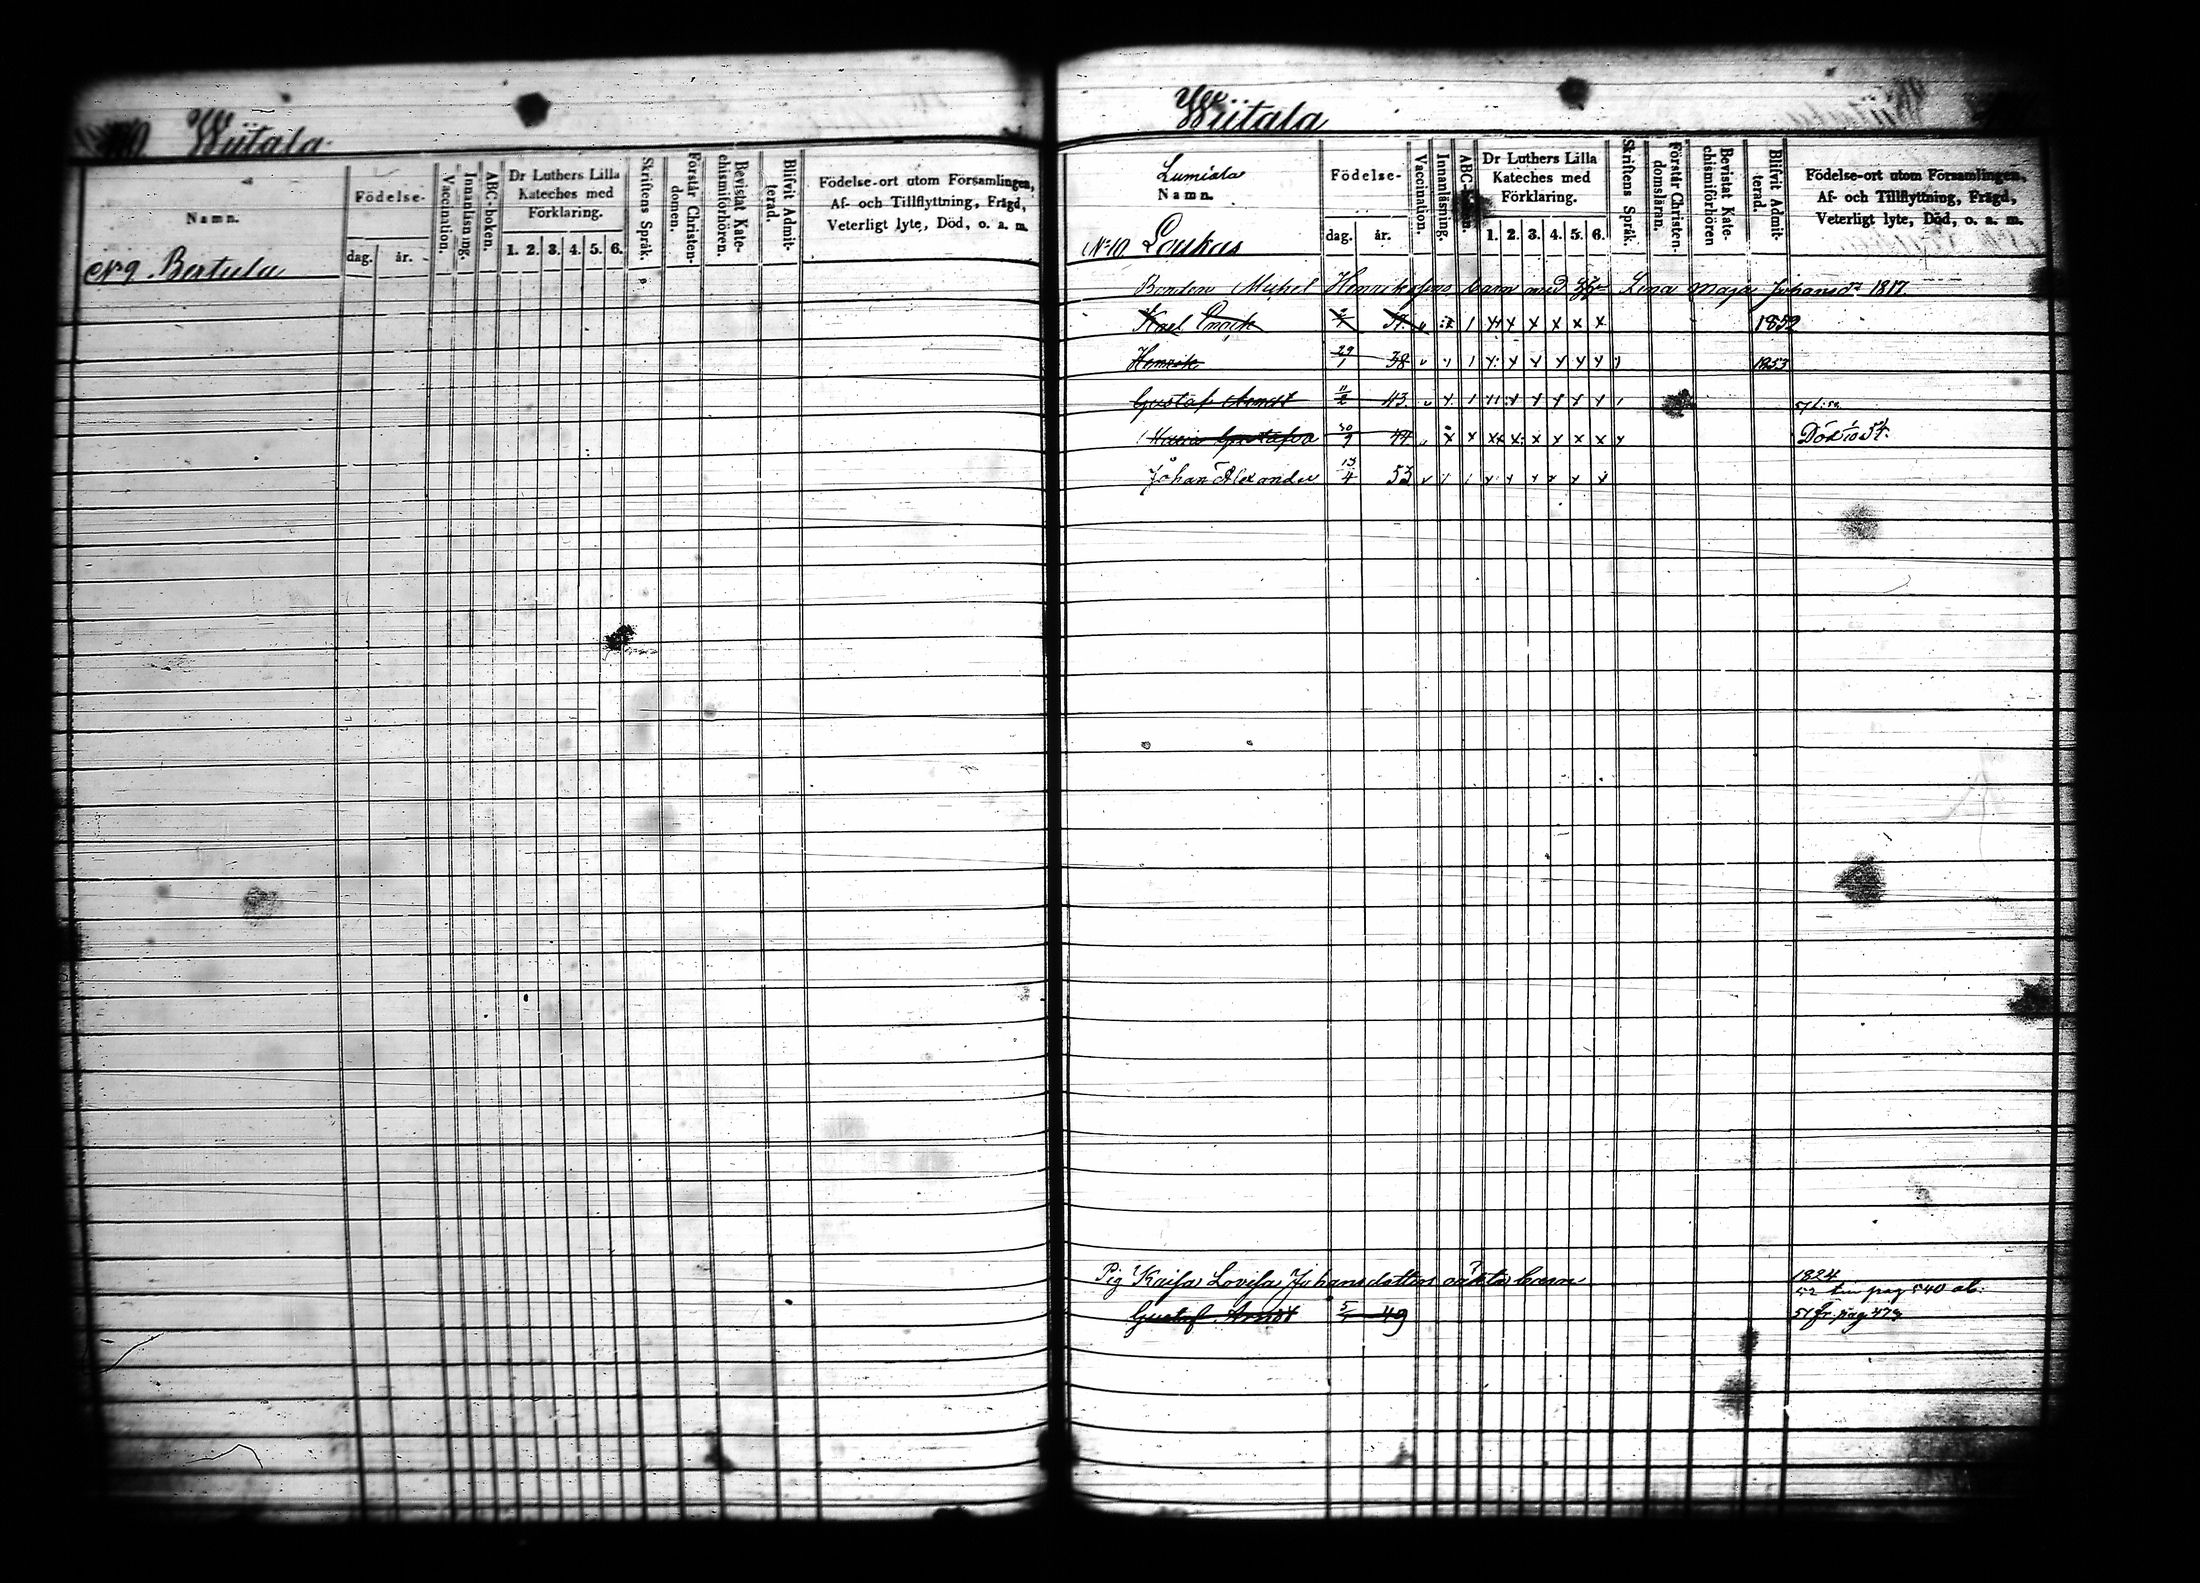 Wiitala
Namn.
Födelse-
dag. år.
Vaccination.
Innanläsning.
ABC-boken.
Dr Luthers Lilla
Kateches med
Förklaring.
1. 2. 3. 4. 5. 6.
Skriftens Språk.
Förstår Christen-
domen.
Bevistat Kate-
chismiförhören.
Blifvit Admit-
terad.
Födelse-ort utom Församlingen,
Af- och Tillflyttning, Frägd,
Veterligt lyte, Död, o. a. m.
No 9. Bertula
Wiitala
Lumiala
Namn.
Födelse-
dag. år.
Vaccination.
Innanläsning.
ABC-
Dr Luthers Lilla
Kateches med
Förklaring.
1. 2. 3. 4. 5. 6.
Skriftens Språk.
Förstår Christen-
domsläran.
Bevistat Kate-
chismiförhören
Blifvit Admit-
terad.
Födelse-ort utom Församlingen,
Af- och Tillflyttning, Frägd,
Veterligt lyte, Död, o. a. m.
No 10. Laukas
Bonden Michel Henrikssons barn med Lena Maja Johansdr 1817.
Karl 37. 1852
Henrik 29/1 38 1853
Gustaf 11/2 43.
Maria Gustafva 30/9 44 Död
Johan Alexander 13/4 53
Pig Kaisa Lovisa Johansdotters oäkta barn 1824
52 pag 540 ab.
Gustaf 49 51 fr. pag 473